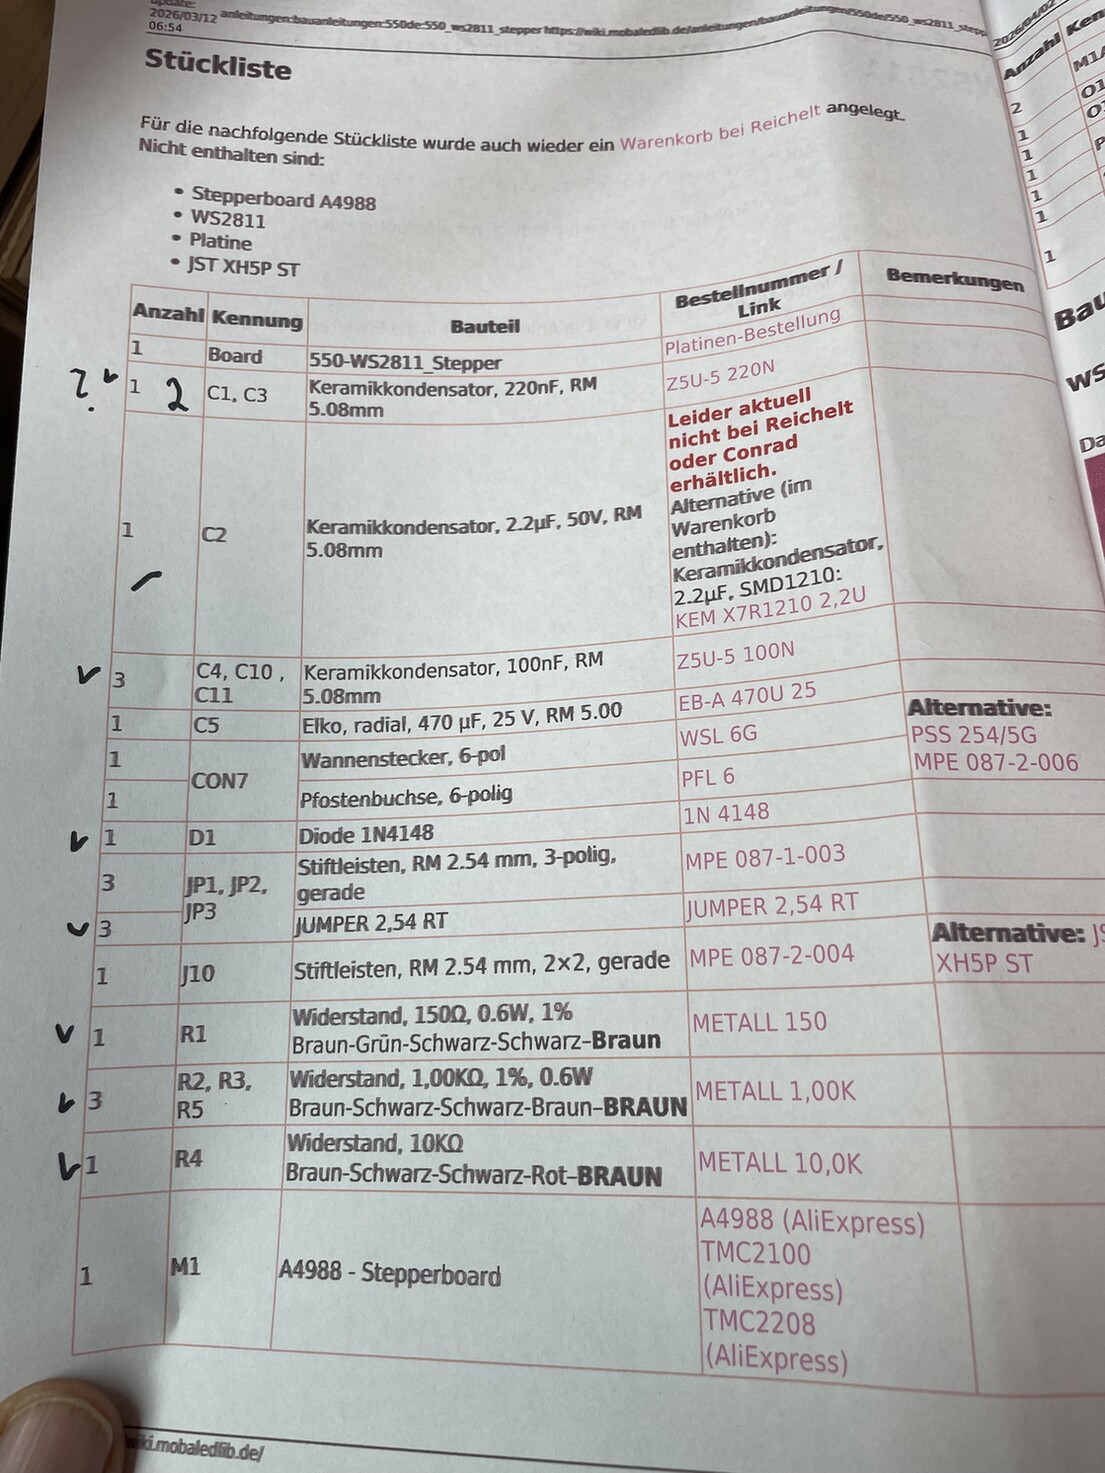 update:
2026/03/12
06:54
anleitungen:bauanleitungen:550de:550_ws2811_stepper https://wiki.mobaledlib.de/anleitungen/bauanleitungen/550de/550_ws2811_stepp
Stückliste
Für die nachfolgende Stückliste wurde auch wieder ein Warenkorb bei Reichelt angelegt.
Nicht enthalten sind:
• Stepperboard A4988
• WS2811
• Platine
• JST XH5P ST
Anzahl Kennung Bauteil Bestellnummer / Link Bemerkungen
1 Board 550-WS2811_Stepper Platinen-Bestellung
? 1 2 C1, C3 Keramikkondensator, 220nF, RM
5.08mm Z5U-5 220N
1 C2 Keramikkondensator, 2.2µF, 50V, RM
5.08mm
Leider aktuell
nicht bei Reichelt
oder Conrad
erhältlich.
Alternative (im
Warenkorb
enthalten):
Keramikkondensator,
2.2µF, SMD1210:
KEM X7R1210 2,2U
3 C4, C10 ,
C11 Keramikkondensator, 100nF, RM
5.08mm Z5U-5 100N
1 C5 Elko, radial, 470 µF, 25 V, RM 5.00 EB-A 470U 25
1 CON7 Wannenstecker, 6-pol WSL 6G Alternative:
PSS 254/5G
MPE 087-2-006
1 Pfostenbuchse, 6-polig PFL 6
1 D1 Diode 1N4148 1N 4148
3 JP1, JP2,
JP3 Stiftleisten, RM 2.54 mm, 3-polig,
gerade MPE 087-1-003
3 JUMPER 2,54 RT JUMPER 2,54 RT
1 J10 Stiftleisten, RM 2.54 mm, 2×2, gerade MPE 087-2-004 Alternative: JS
XH5P ST
1 R1 Widerstand, 150Ω, 0.6W, 1%
Braun-Grün-Schwarz-Schwarz–Braun METALL 150
3 R2, R3,
R5 Widerstand, 1,00KΩ, 1%, 0.6W
Braun-Schwarz-Schwarz-Braun–BRAUN METALL 1,00K
1 R4 Widerstand, 10KΩ
Braun-Schwarz-Schwarz-Rot–BRAUN METALL 10,0K
1 M1 A4988 - Stepperboard A4988 (AliExpress)
TMC2100
(AliExpress)
TMC2208
(AliExpress)
wiki.mobaledlib.de/
Anzahl Ken
2 M1
1 O1
1
1
1
1
1
Bau
WS
Da